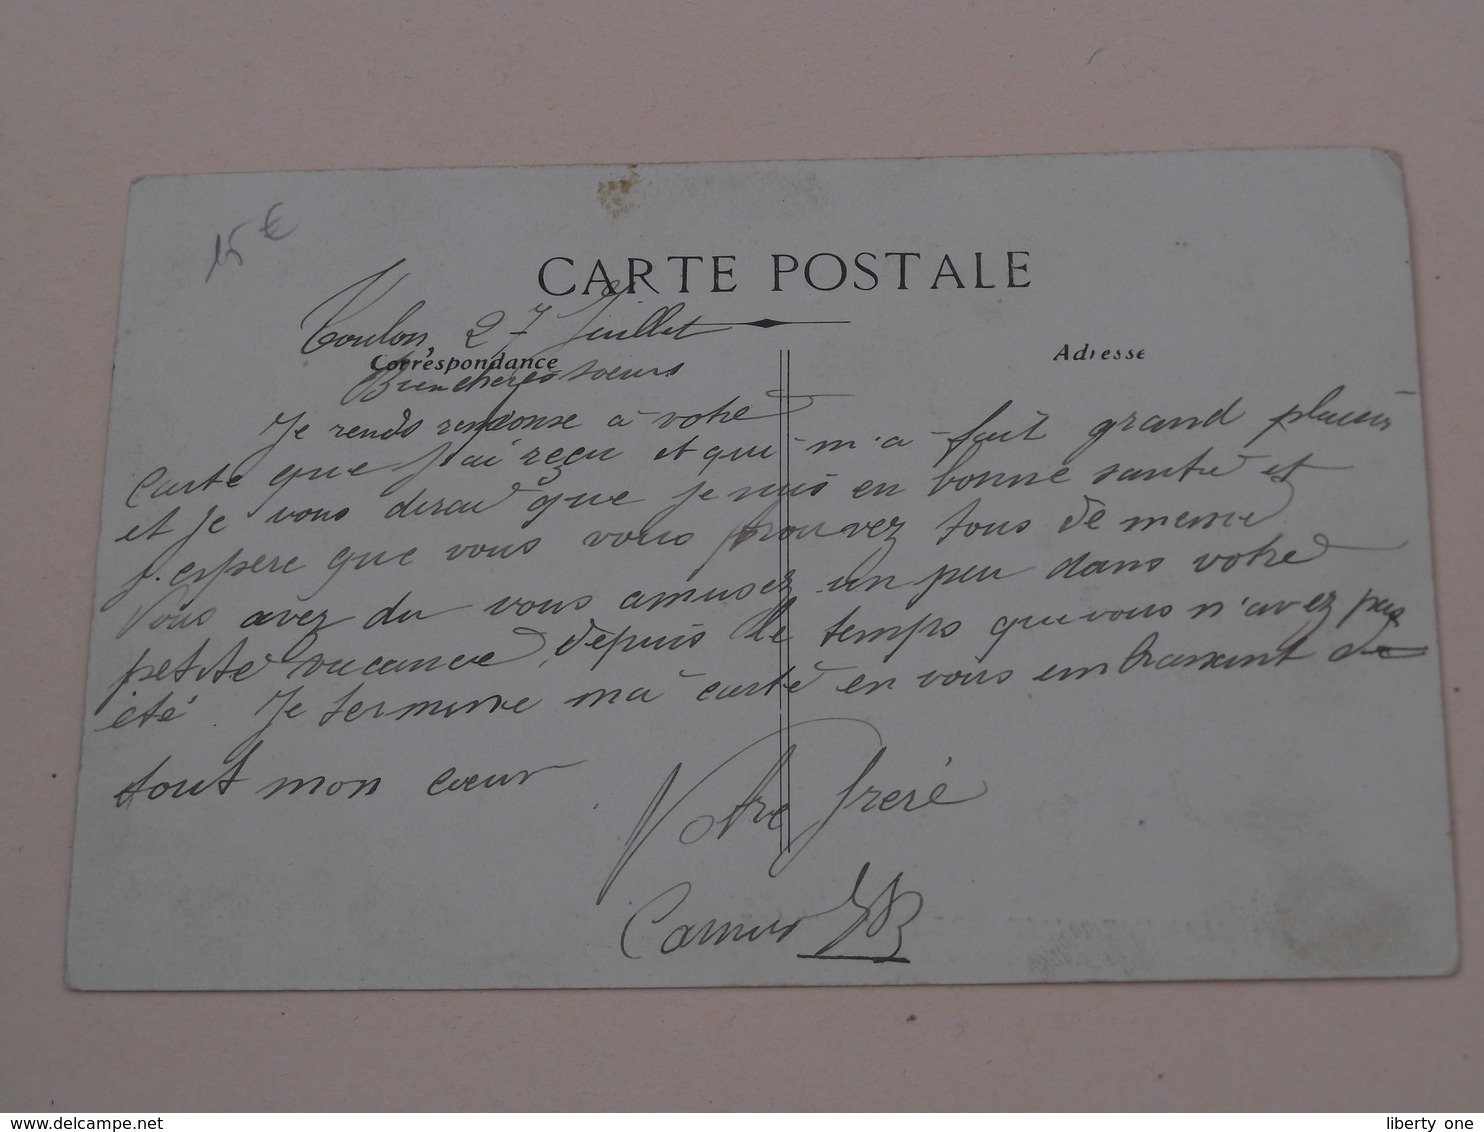 15 €
CARTE POSTALE
Toulon, 27 Juillet
Correspondance
Adresse
Bien chères soeurs
Je rends reseonse à votre
carte que j'ai reçu et qui m'a fait grand plaisir
et je vous dirai que je suis en bonne santé et
j'espère que vous vous trouvez tous de meme
Vous avez du vous amusez un peu dans votre
petite vacance, depuis le temps que vous n'avez pas
été. Je termine ma carte en vous embrassant de
tout mon cœur
Votre frère
Camus
© DELCAMPE
liberty one